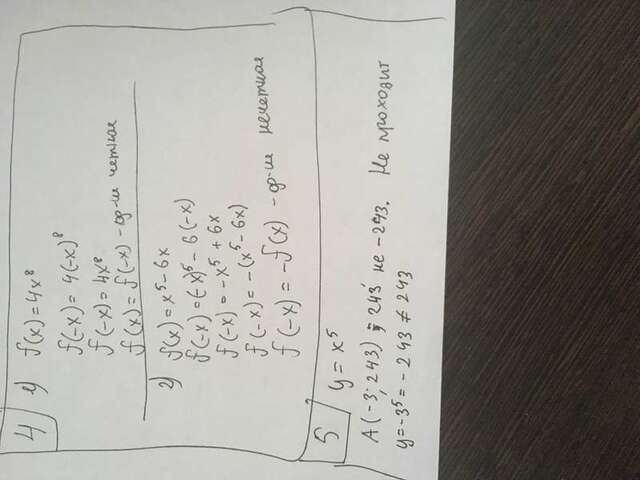 4 1) f(x) = 4x⁸
f(-x) = 4(-x)⁸
f(-x) = 4x⁸
f(x) = f(-x) - ф-ия четная
2) f(x) = x⁵ - 6x
f(-x) = (-x)⁵ - 6(-x)
f(-x) = -x⁵ + 6x
f(-x) = -(x⁵ - 6x)
f(-x) = -f(x) - ф-ия нечетная
5 y = x⁵
A(-3; 243) ; 243 не -243. Не проходит
y = -3⁵ = -243 ≠ 243